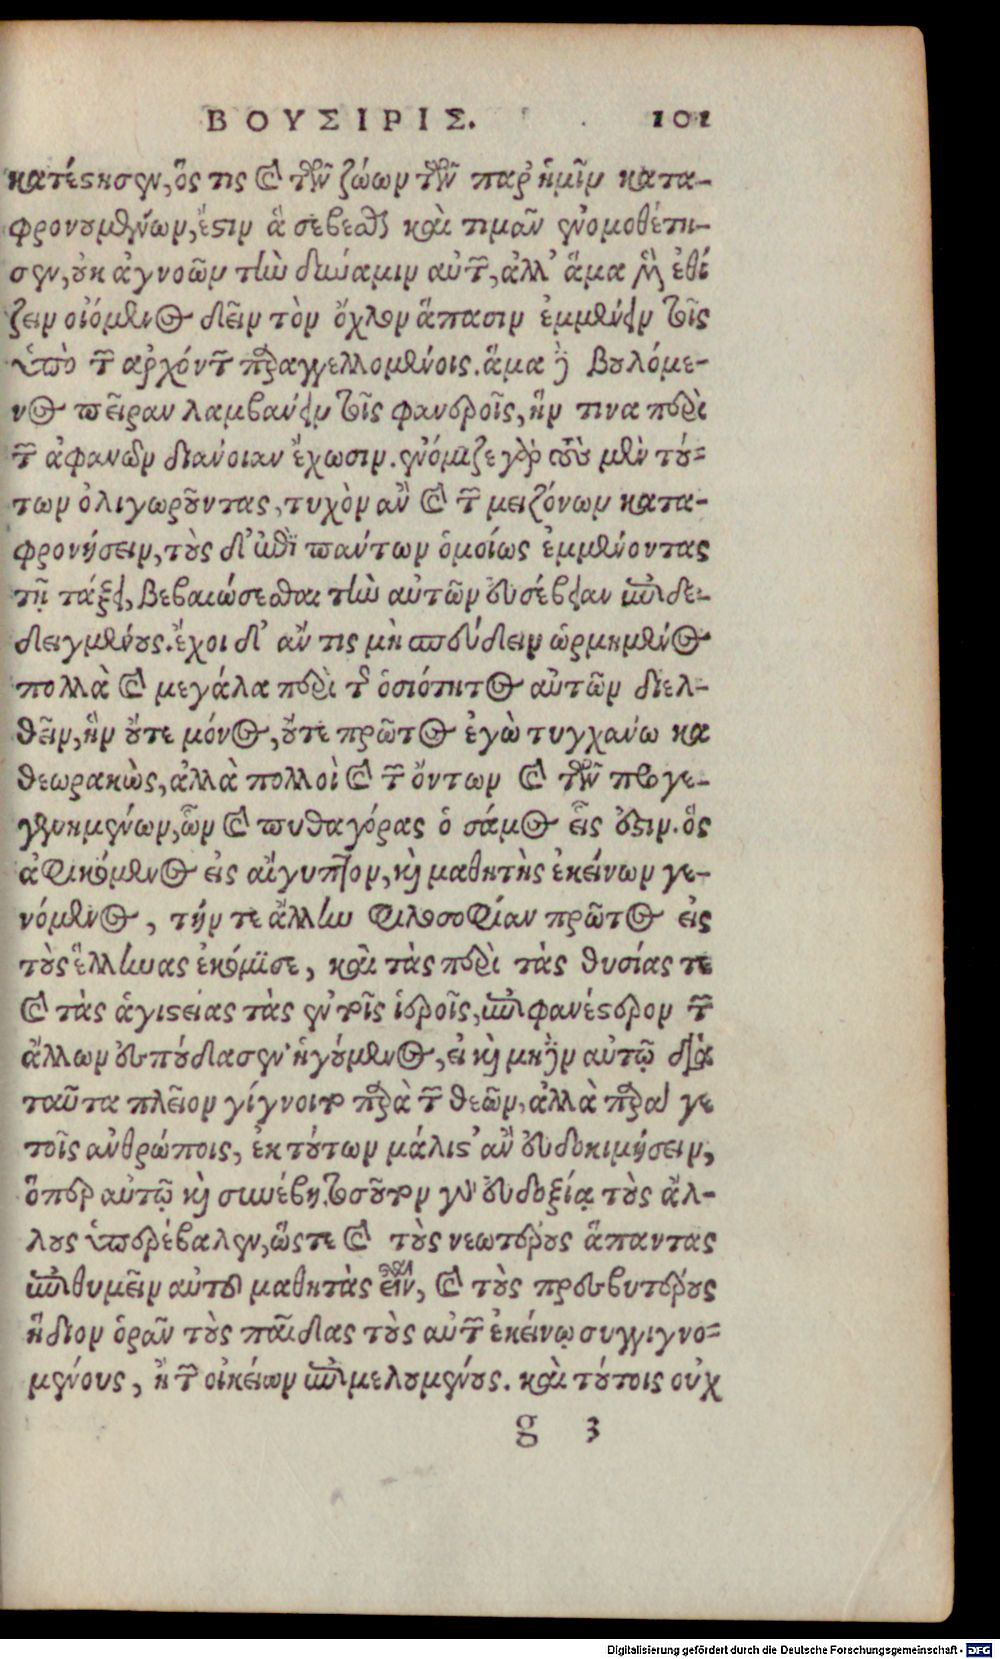 ΒΟΥΣΙΡΙΣ. 101
κατέστησεν, ὅς τις καὶ τῶν ζώων τῶν παρ' ἡμῖν κατα-
φρονουμένων, ἔστιν ἃ σέβεσθαι καὶ τιμᾶν ἐνομοθέτη-
σεν, οὐκ ἀγνοῶν τὴν δύναμιν αὐτῶν, ἀλλ' ἅμα μὲν ἐθί
ζειν οἰόμενος δεῖν τὸν ὄχλον ἅπασιν ἐμμένειν τοῖς
ὑπὸ τῶν ἀρχόντων παραγγελλομένοις. ἅμα δὲ βουλόμε-
νος πεῖραν λαμβάνειν τοῖς φανεροῖς, ἥν τινα περὶ
τῶν ἀφανῶν διάνοιαν ἔχωσιν. ἐνόμιζε γὰρ τοὺς μὲν τού-
των ὀλιγωροῦντας, τυχὸν ἂν καὶ τῶν μειζόνων κατα-
φρονήσειν, τοὺς δ' ἐπὶ πάντων ὁμοίως ἐμμένοντας
τῇ τάξει, βεβαιώσεσθαι τὴν αὐτῶν εὐσέβειαν ἐπιδε-
δειγμένους. ἔχοι δ' ἄν τις μὴ σπεύδειν ὡρμημένος
πολλὰ καὶ μεγάλα περὶ τῆς ὁσιότητος αὐτῶν διελ-
θεῖν, ἣν οὔτε μόνος, οὔτε πρῶτος ἐγὼ τυγχάνω κα
θεωρακὼς, ἀλλὰ πολλοὶ καὶ τῶν ὄντων καὶ τῶν προγε-
γενημένων, ὧν καὶ πυθαγόρας ὁ σάμιος εἷς ἐστιν. ὃς
ἀφικόμενος εἰς αἴγυπτον, καὶ μαθητὴς ἐκείνων γε-
νόμενος, τήν τε ἄλλην φιλοσοφίαν πρῶτος εἰς
τοὺς ἕλληνας ἐκόμισε, καὶ τὰς περὶ τὰς θυσίας τε
καὶ τὰς ἁγιστείας τὰς ἐν τοῖς ἱεροῖς, ἐπιφανέστερον τῶν
ἄλλων ἐσπούδασεν· ἡγούμενος, εἰ καὶ μηδὲν αὐτῷ διὰ
ταῦτα πλεῖον γίγνοιτο παρὰ τῶν θεῶν, ἀλλὰ παρά γε
τοῖς ἀνθρώποις, ἐκ τούτων μάλιστ' ἂν εὐδοκιμήσειν,
ὅπερ αὐτῷ καὶ συνέβη. τοσοῦτον γὰρ εὐδοξίᾳ τοὺς ἄλ-
λους ὑπερέβαλεν, ὥστε καὶ τοὺς νεωτέρους ἅπαντας
ἐπιθυμεῖν αὐτοῦ μαθητὰς εἶναι, καὶ τοὺς πρεσβυτέρους
ἥδιον ὁρᾶν τοὺς παῖδας τοὺς αὐτῶν ἐκείνῳ συγγιγνο-
μένους, ἢ τῶν οἰκείων ἐπιμελουμένους. καὶ τούτοις οὐχ
g 3
Digitalisierung gefördert durch die Deutsche Forschungsgemeinschaft - DFG